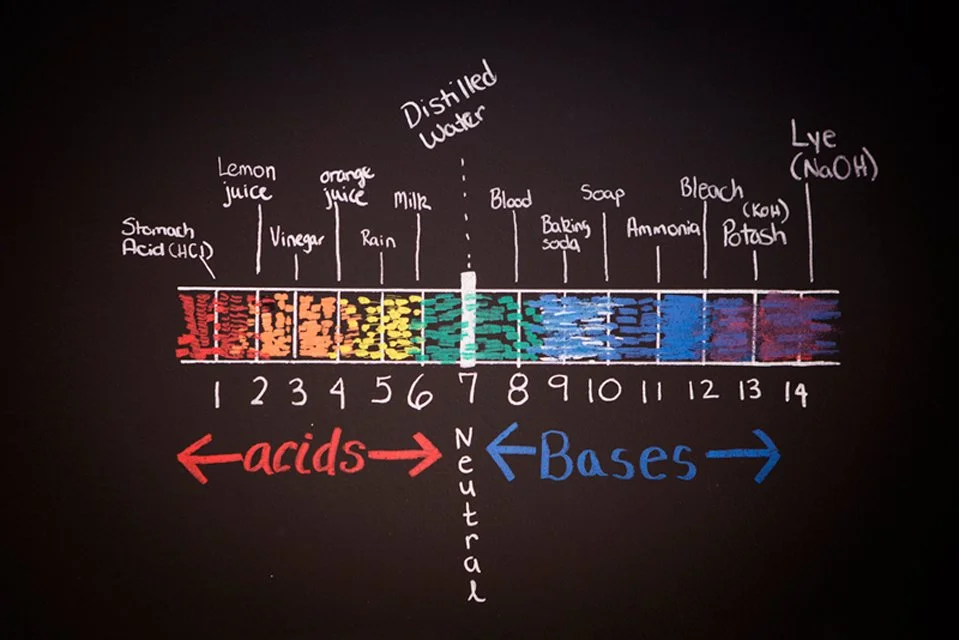 Distilled
Water
Lemon
juice
orange
juice
Milk
Stomach
Acid (HCl)
Vinegar
Rain
Blood
Baking
soda
Soap
Ammonia
Bleach
(KOH)
Potash
Lye
(NaOH)
1 2 3 4 5 6 7 8 9 10 11 12 13 14
acids
Neutral
Bases